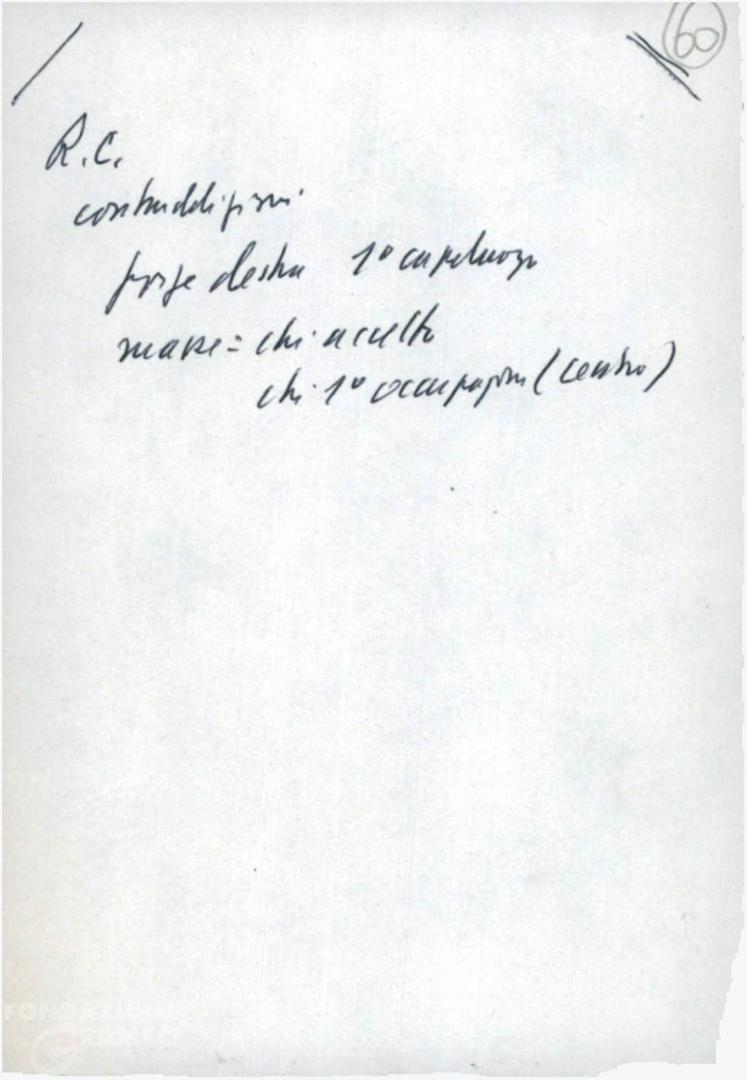 60
R.C.
contraddizioni
forze destra 1º capoluogo
masse = chi accetta
chi 1º occupazione (centro)
FONDAZIONE